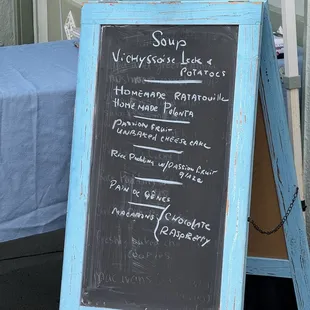 Soup
Vichyssoise Leek &
Potatoes
Homemade Ratatouille
Homemade Polenta
Passion fruit
unbaked cheese cake
Rice Pudding w/ Passion fruit
glaze
Pain de Gênes
Macarons
Chocolate
Raspberry